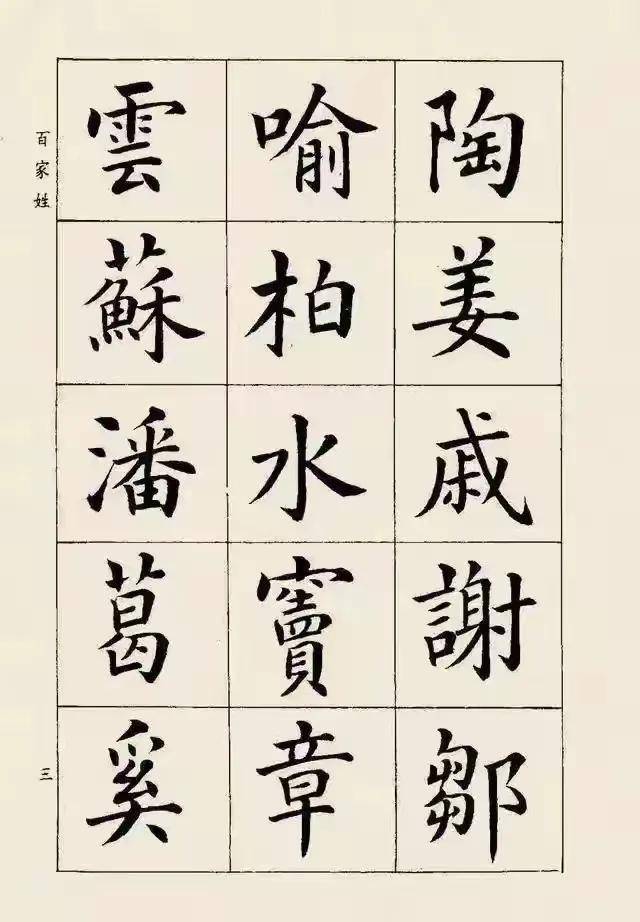 陶姜戚謝鄒
喻柏水竇章
雲蘇潘葛奚
百家姓
三